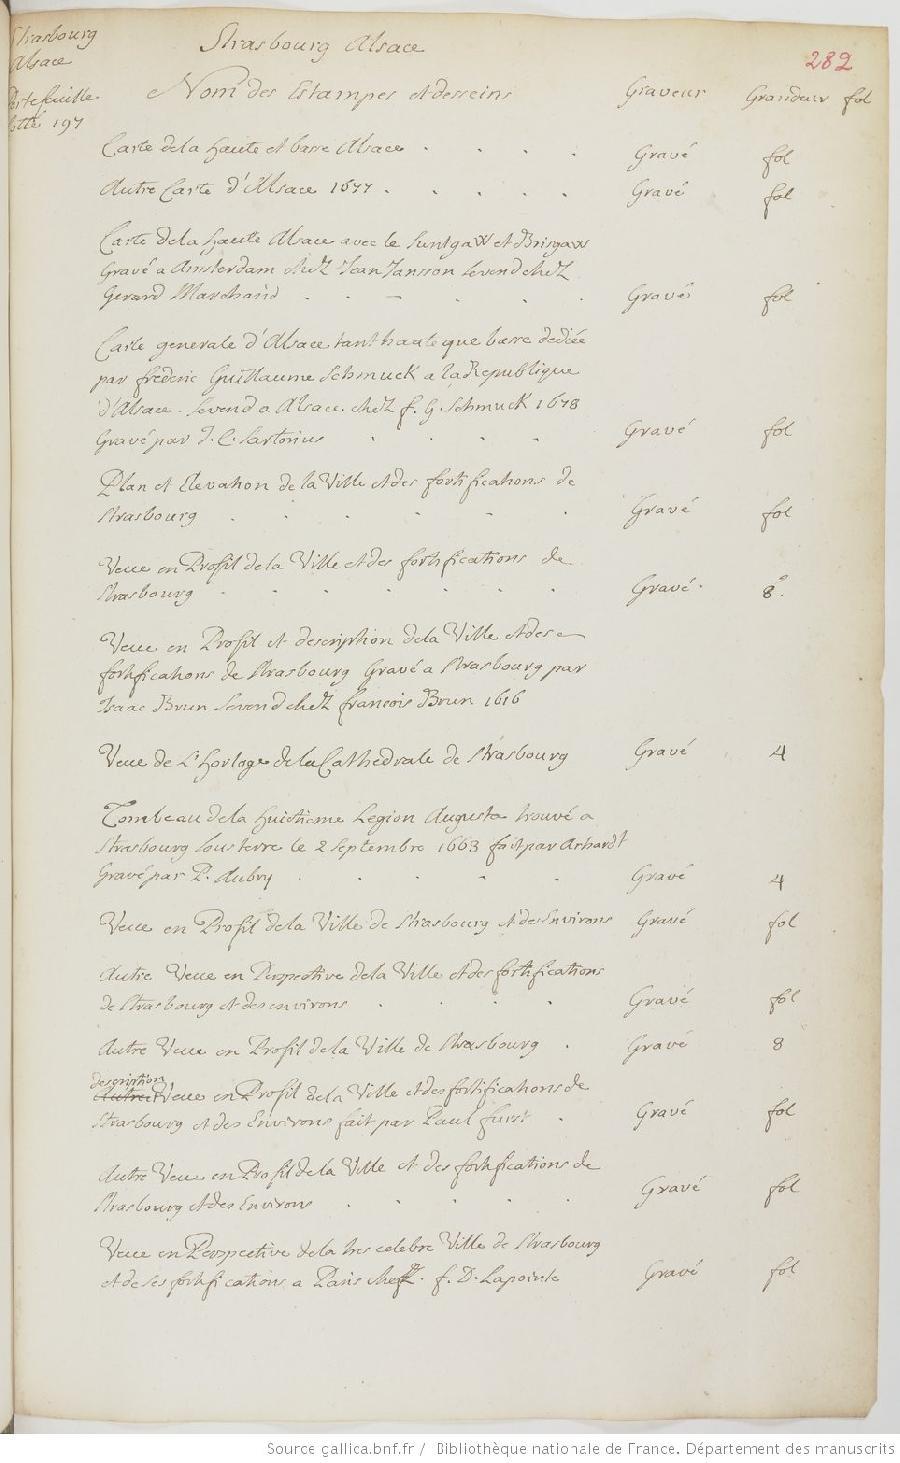 Strasbourg
Alsace
Portefeuille
cotté 197
Strasbourg Alsace
282
Nom des Estampes et desseins Graveur Grandeur fol
Carte de la haute et basse Alsace . . . . Gravé fol
Autre Carte d'Alsace 1677 . . . . . Gravé fol
Carte de la haute Alsace avec le Suntgaw et Brisgaw
Gravé a Amsterdam chez Jean Jansson se vend chez
Gerard Marchand . . . . . Gravé fol
Carte generale d'Alsace tant haute que basse dediée
par frederic Guillaume Schmuck a la Republique
d'Alsace. se vend a Alsace. chez f. G. Schmuck 1678
Gravé par J. C. Sartorius . . . . Gravé fol
Plan et Elevation de la Ville et des fortifications de
Strasbourg . . . . . . Gravé fol
Veue en Profil de la Ville et des fortifications de
Strasbourg . . . . . . . Gravé. 8°.
Veue en Profil et description de la Ville et des
fortifications de Strasbourg Gravé a Strasbourg par
Isaac Brun se vend chez francois Brun 1616
Veue de L'horloge de la Cathedrale de Strasbourg Gravé 4
Tombeau de la huictieme Legion Augusta trouvé a
Strasbourg sous terre le 2 Septembre 1663 fait par Arhardt
Gravé par P. Aubry . . . . Gravé 4
Veue en Profil de la Ville de Strasbourg et des Environs Gravé fol
Autre Veue en Perspective de la Ville et des fortifications
de Strasbourg et des environs . . . . Gravé fol
Autre Veue en Profil de la Ville de Strasbourg . Gravé 8
description
Autre Veue en Profil de la Ville et des fortifications de
Strasbourg et des Environs fait par Paul furst . Gravé fol
Autre Veue en Profil de la Ville et des fortifications de
Strasbourg et des Environs . . . . . Gravé fol
Veue en Perspective de la tres celebre Ville de Strasbourg
et de ses fortifications a Paris chez f. D. Lapointe Gravé fol
Source gallica.bnf.fr / Bibliothèque nationale de France. Département des manuscrits